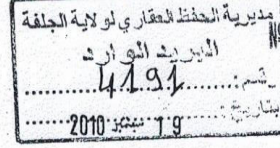 مديرية الحفظ العقاري لولاية الجلفة
البريد الوارد
رقم: 4191
بتاريخ: 19 سبتمبر 2010